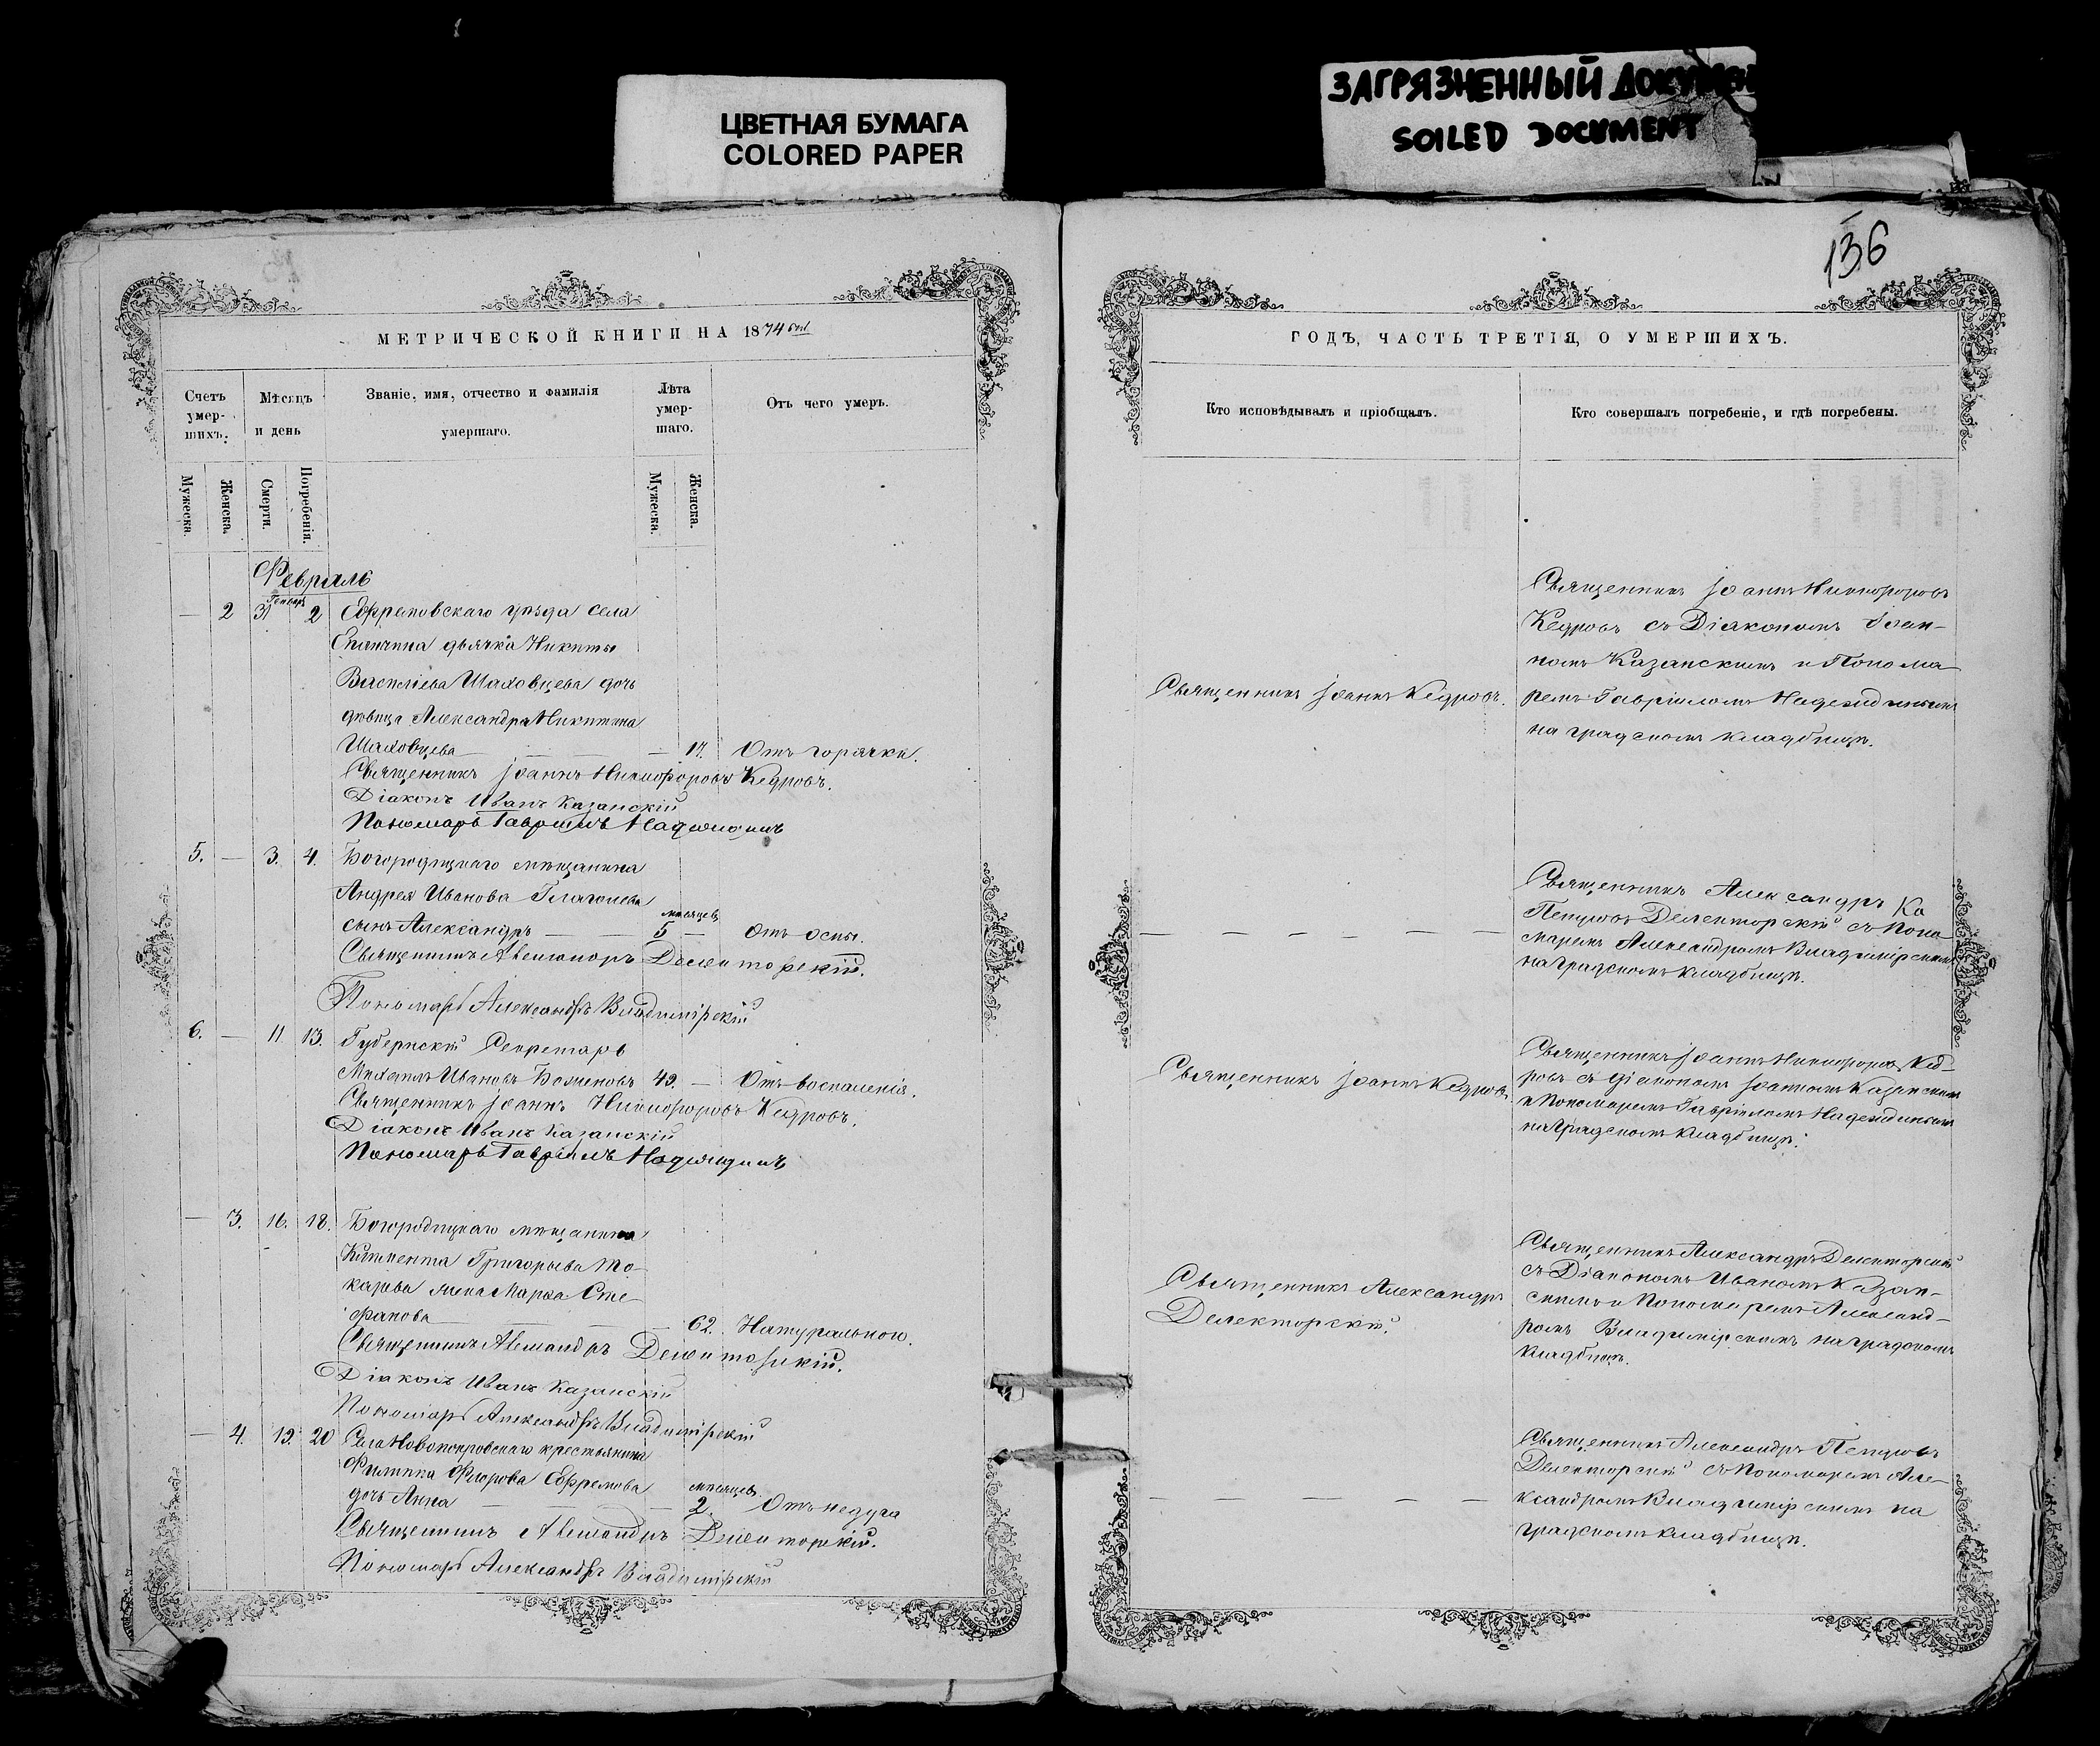 ЦВЕТНАЯ БУМАГА
COLORED PAPER
ЗАГРЯЗНЕННЫЙ
SOILED DOCUMENT
136
МЕТРИЧЕСКОЙ КНИГИ НА 1874
Счетъ умер-шихъ.
Мѣсяцъ и день
Званіе, имя, отчество и фамилія умершаго.
Лѣта умер-шаго.
Отъ чего умеръ.
Мужеска.
Женска.
Смерти.
Погребенія.
Мужеска.
Женска.
Февраль
Генваря
— 2 31 2 Ефремовскаго уѣзда села
Епанчина дьячка Никиты
Васильева Шаховцева дочь
дѣвица Александра Никитина
Шаховцева — 17. Отъ горячки.
Священникъ Іоаннъ Никифоровъ Кедровъ.
Діаконъ Иванъ Казанскій
Пономарь Гавріилъ Надеждинъ
5. — 3. 4. Богородицкаго мѣщанина
Андрея Иванова Глаголева
мѣсяцевъ
сынъ Александръ — 5 — Отъ оспы.
Священникъ Александръ Делекторскій.
Пономарь Александръ Владимірскій
6. — 11. 13. Губернскій Секретарь
Михаилъ Ивановъ Баженовъ 49. — Отъ воспаленія.
Священникъ Іоаннъ Никифоровъ Кедровъ.
Діаконъ Иванъ Казанскій
Пономарь Гавріилъ Надеждинъ
— 3. 16. 18. Богородицкаго мѣщанина
Климента Григорьева То-
карева жена Марѳа Сте-
фанова — 62. Натуральною.
Священникъ Александръ Делекторскій.
Діаконъ Иванъ Казанскій
Пономарь Александръ Владимірскій
— 4. 19. 20 Села Новопокровскаго крестьянина
Филиппа Флорова Ефремова
мѣсяцевъ.
дочь Анна — 2. Отъ недуга
Священникъ Александръ Делекторскій.
Пономарь Александръ Владимірскій
ГОДЪ, ЧАСТЬ ТРЕТІЯ, О УМЕРШИХЪ.
Кто исповѣдывалъ и пріобщалъ.
Кто совершалъ погребеніе, и гдѣ погребены.
Священникъ Іоаннъ Кедровъ.
Священникъ Іоаннъ Никифоровъ
Кедровъ съ Діакономъ Іоан-
номъ Казанскимъ и Понома-
ремъ Гавріиломъ Надеждинымъ
на градскомъ кладбищѣ.
— — — — — —
Священникъ Александръ
Петровъ Делекторскій съ Поно-
маремъ Александромъ Владимірскимъ
на градскомъ кладбищѣ.
Священникъ Іоаннъ Кедровъ
Священникъ Іоаннъ Никифоровъ Кед-
ровъ съ діакономъ Іоанномъ Казанскимъ
и Пономаремъ Гавріиломъ Надеждинымъ
на градскомъ кладбищѣ.
Священникъ Александръ
Делекторскій.
Священникъ Александръ Делекторскій
съ Діакономъ Иваномъ Казан-
скимъ и Пономаремъ Александ-
ромъ Владимірскимъ на градскомъ
кладбищѣ.
— — — — — —
Священникъ Александръ Петровъ
Делекторскій съ Пономаремъ Але-
ксандромъ Владимірскимъ на
градскомъ кладбищѣ.